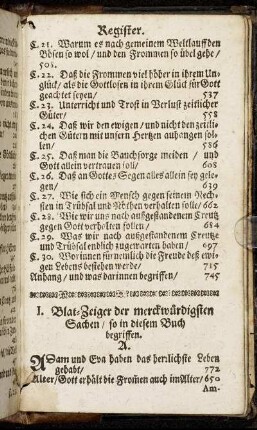 Register.
C. 21. Warum es nach gemeinem Weltlauff den
Bösen so wol / und den Frommen so übel gehe /
505.
C. 22. Daß die Frommen viel höher in ihrem Un-
glück / als die Gottlosen in ihrem Glück für Gott
geachtet seyen / 537
C. 23. Unterricht und Trost in Verlust zeitlicher
Güter / 558
C. 24. Daß wir den ewigen / und nicht den zeitli-
chen Gütern mit unsern Hertzen anhangen sol-
len / 586
C. 25. Daß man die Bauchsorge meiden / und
Gott allein vertrauen soll / 608
C. 26. Daß an Gottes Segen alles allein sey gele-
gen / 639
C. 27. Wie sich ein Mensch gegen seinem Nech-
sten in Trübsal und Nöthen verhalten solle / 662.
C. 28. Wie wir uns nach aufgestandenem Creutz
gegen Gott verhalten sollen / 684
C. 29. Was wir nach aufgestandenem Creutze
und Trübsal endlich zugewarten haben / 697
C. 30. Worinnen fürnemlich die Freude deß ewi-
gen Lebens bestehen werde / 715
Anhang / und was darinnen begriffen / 745
I. Blat-Zeiger der merckwürdigsten
Sachen / so in diesem Buch
begriffen.
A.
ADam und Eva haben das herzlichste Leben
gehabt / 772
Alter / Gott erhält die From̃en auch im Alter / 650
Am-